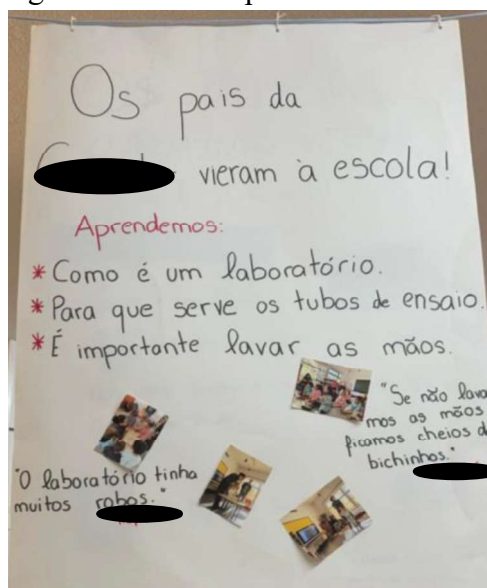 Os pais da
vieram à escola!
Aprendemos:
* Como é um laboratório.
* Para que serve os tubos de ensaio.
* É importante lavar as mãos.
"Se não lava
mos as mãos
ficamos cheios d
bichinhos."
"O laboratório tinha
muitos robos."